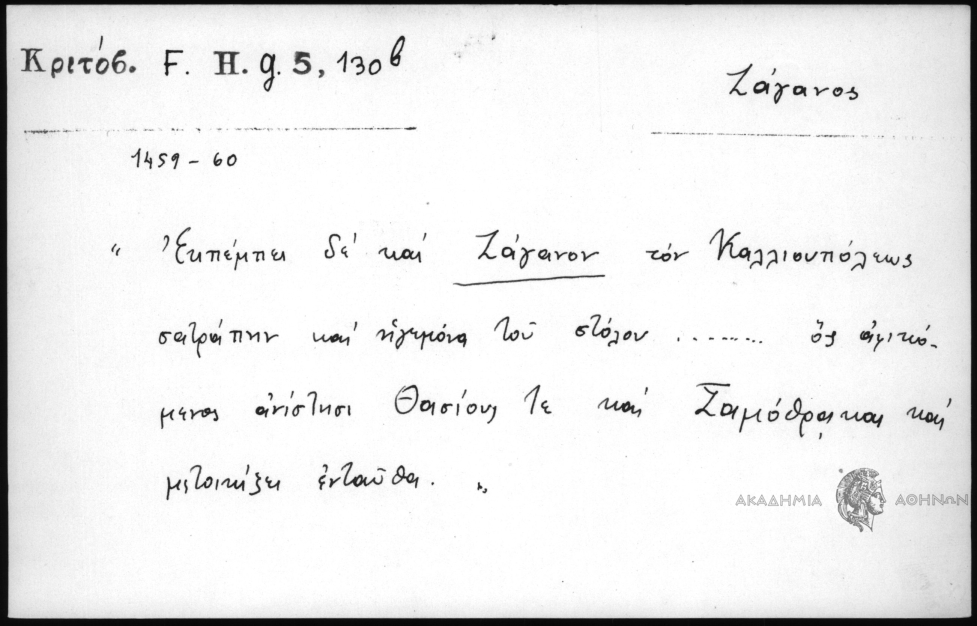 Κριτόβ. F. H. g. 5, 130 b
Ζάγανος
1459 - 60
" Ἐκπέμπει δέ καί Ζάγανον τόν Καλλιουπόλεως
σατράπην καί ἡγεμόνα τοῦ στόλου ........ ὅς ἀφικό-
μενος ἀνίστησι Θασίους τε καί Σαμόθρᾳκας καί
μετοικίζει ἐνταῦθα. "
ΑΚΑΔΗΜΙΑ ΑΘΗΝΩΝ